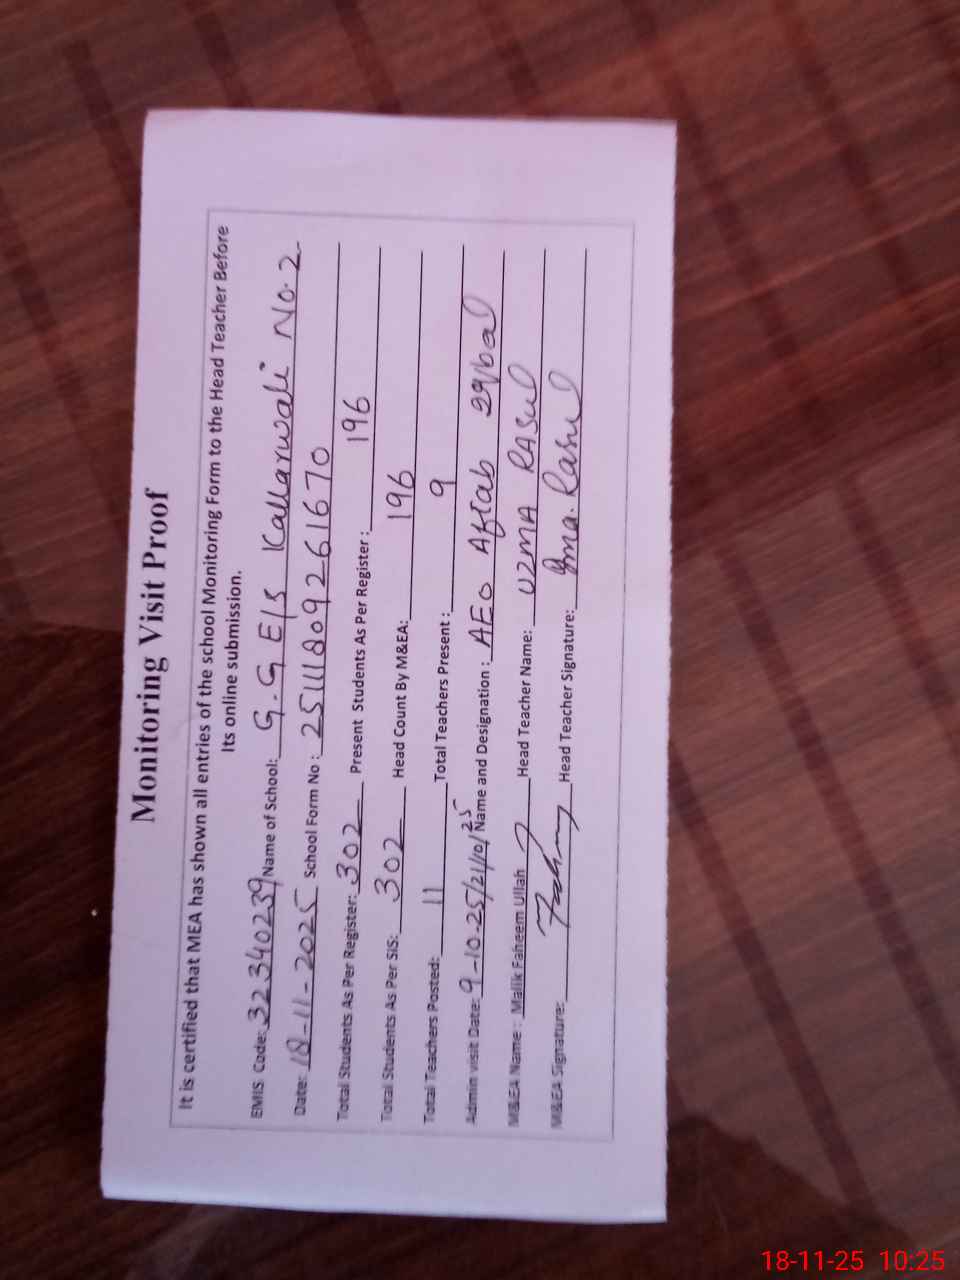 Monitoring Visit Proof
It is certified that MEA has shown all entries of the school Monitoring Form to the Head Teacher Before
Its online submission.
EMIS Code: 32340239 Name of School: G.G E/S Kallarwali No.2
Date: 18-11-2025 School Form No : 25111809261670
Total Students As Per Register: 302 Present Students As Per Register : 196
Total Students As Per SIS: 302 Head Count By M&EA: 196
Total Teachers Posted: 11 Total Teachers Present : 9
Admin visit Date: 9-10-25/21/10/25 Name and Designation : AEO Aftab Iqbal
M&EA Name : Malik Faheem Ullah Head Teacher Name: UZMA RASUL
M&EA Signature: Head Teacher Signature: Rasul
18-11-25 10:25